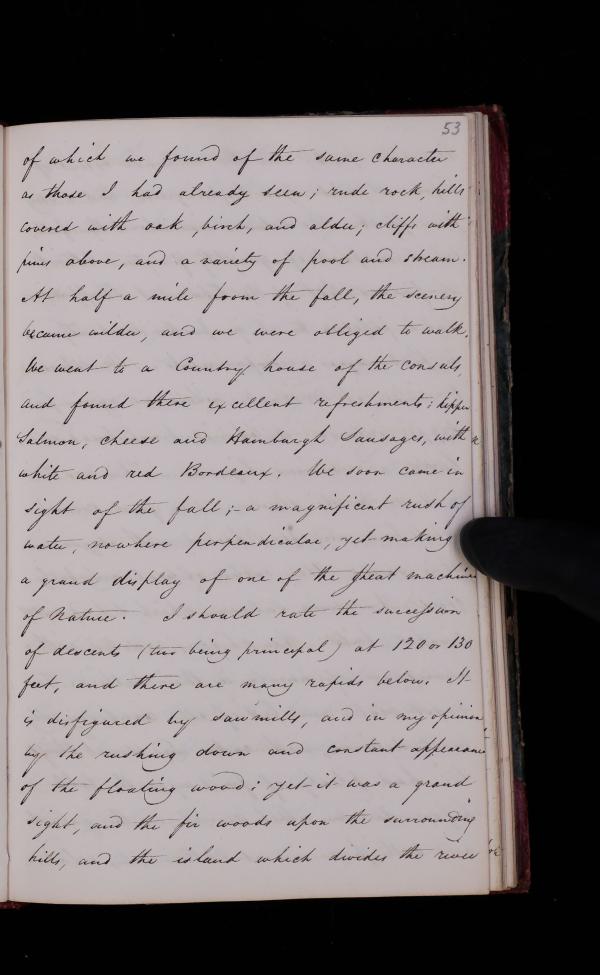 53
of which we found of the same character
as those I had already seen; rude rock, hills
covered with oak, birch, and alder; cliffs with
pines above, and a variety of pool and stream.
At half a mile from the fall, the scenery
became wilder, and we were obliged to walk.
We went to a Country house of the consuls,
and found there excellent refreshments: kipper
Salmon, cheese and Hamburgh Sausages, with
white and red Bordeaux. We soon came in
sight of the fall;- a magnificent rush of
water, nowhere perpendicular, yet making
a grand display of one of the great machines
of Nature. I should rate the succession
of descents (two being principal) at 120 or 130
feet, and there are many rapids below. It
is disfigured by saw mills, and in my opinion
by the rushing down and constant appearance
of the floating wood: yet it was a grand
sight, and the fir woods upon the surrounding
hills, and the island which divides the river